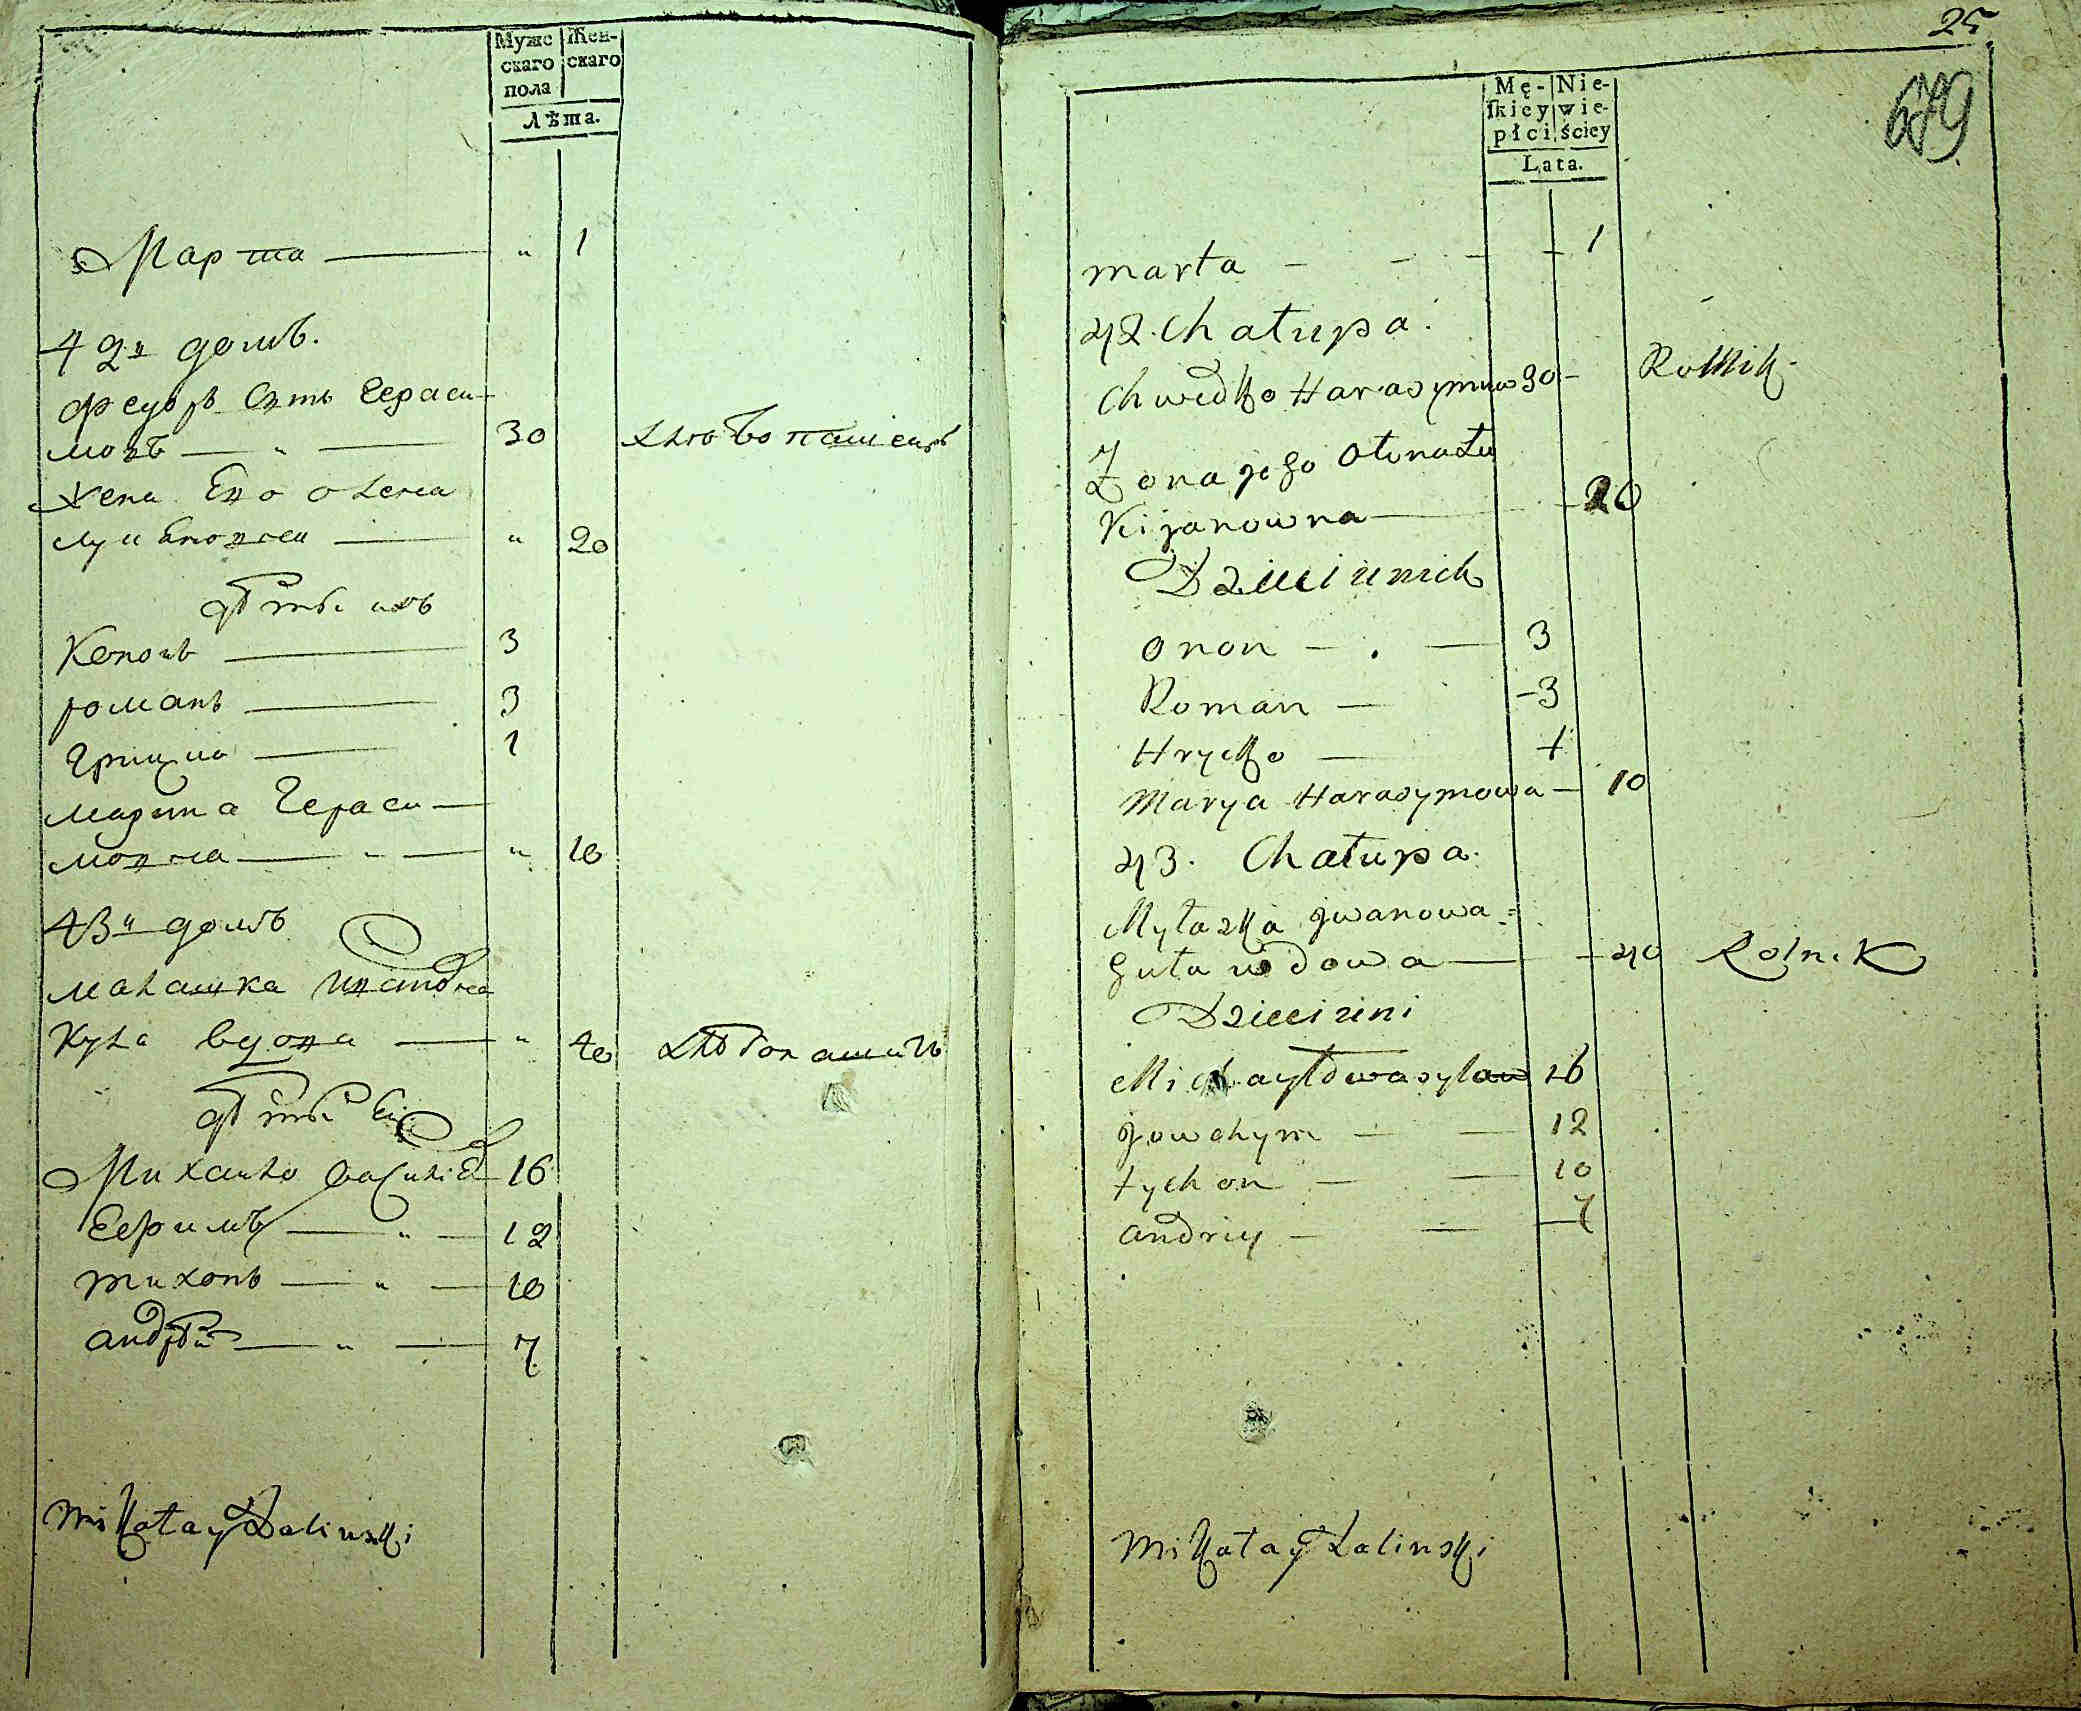 Муже
скаго
пола
Жен-
скаго
Лѣта.
Марта — „ 1
42й домъ.
Федоръ Сынъ Гераси-
мовъ — „ — 30 хлѣбопашецъ
жена Его
— „ 20
Дѣти ихъ
Кононъ — 3
романъ — 3
Грицко — 1
Гераси-
мовна — „ — „ 10
43й домъ
малашка Иванова
Кула вдова — „ 40
Дѣти Еи
Михайло Васил 16
Ефимъ — „ — 12
тихонъ — „ — 10
андрѣй — „ — 7
Mikołay Zalinski
25
679
Mę-
skiey
płci
Nie-
wie-
ściey
Lata.
marta - - - - 1
42. Chałupa.
Chwedko Harasymow 30 - Rolnik
Żona jego
Kijanowna — 20
Dzieci ich
onon — . — 3
Roman — - 3
Hrycko — 1
Marya Harasymowa — 10
43. Chałupa.
Mytaszka Jwanowa =
guła wdowa — 40 Rolnik
Dzieci
Michayło wasylow 16
Jowchym — — 12
tychon — — 10
andriy — — 7
Mikołay Zalinski